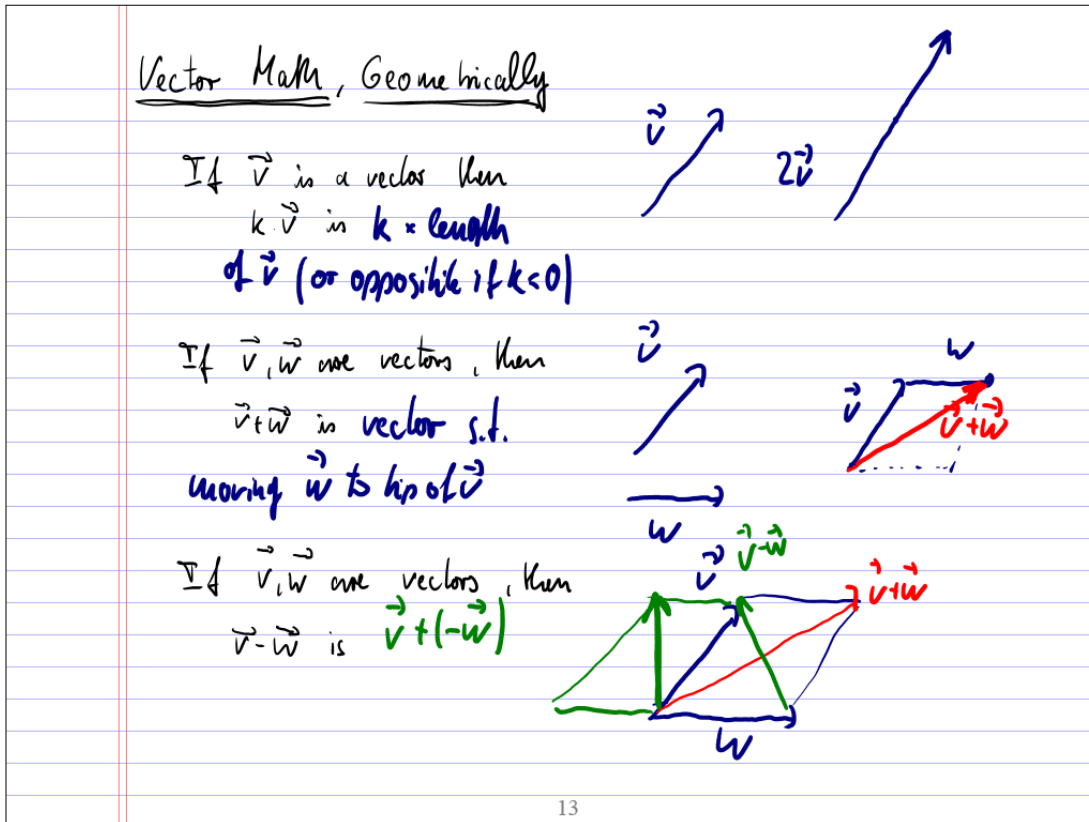 Vector Math, Geometrically
v⃗
2v⃗
If v⃗ is a vector then
k·v⃗ is k × length
of v⃗ (or opposite if k<0)
v⃗
w
v⃗
v⃗+w⃗
If v⃗, w⃗ are vectors, then
v⃗+w⃗ is vector s.t.
moving w⃗ to tip of v⃗
w
If v⃗, w⃗ are vectors, then
v⃗-w⃗ is v⃗+(-w⃗)
v⃗
v⃗-w⃗
v⃗+w⃗
w
13